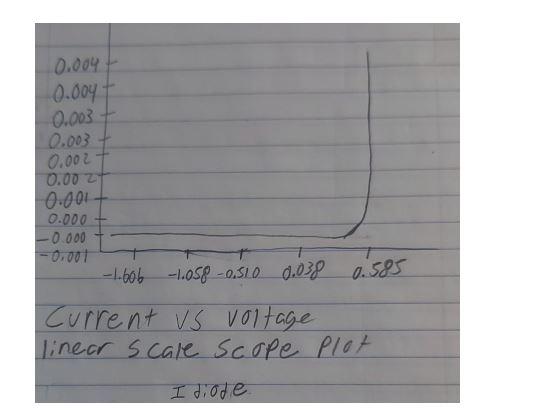 0.004
0.004
0.003
0.003
0.002
0.002
0.001
0.000
-0.000
-0.001
-1.606 -1.058 -0.510 0.038 0.585
Current vs voltage
linear scale scope plot
I diode